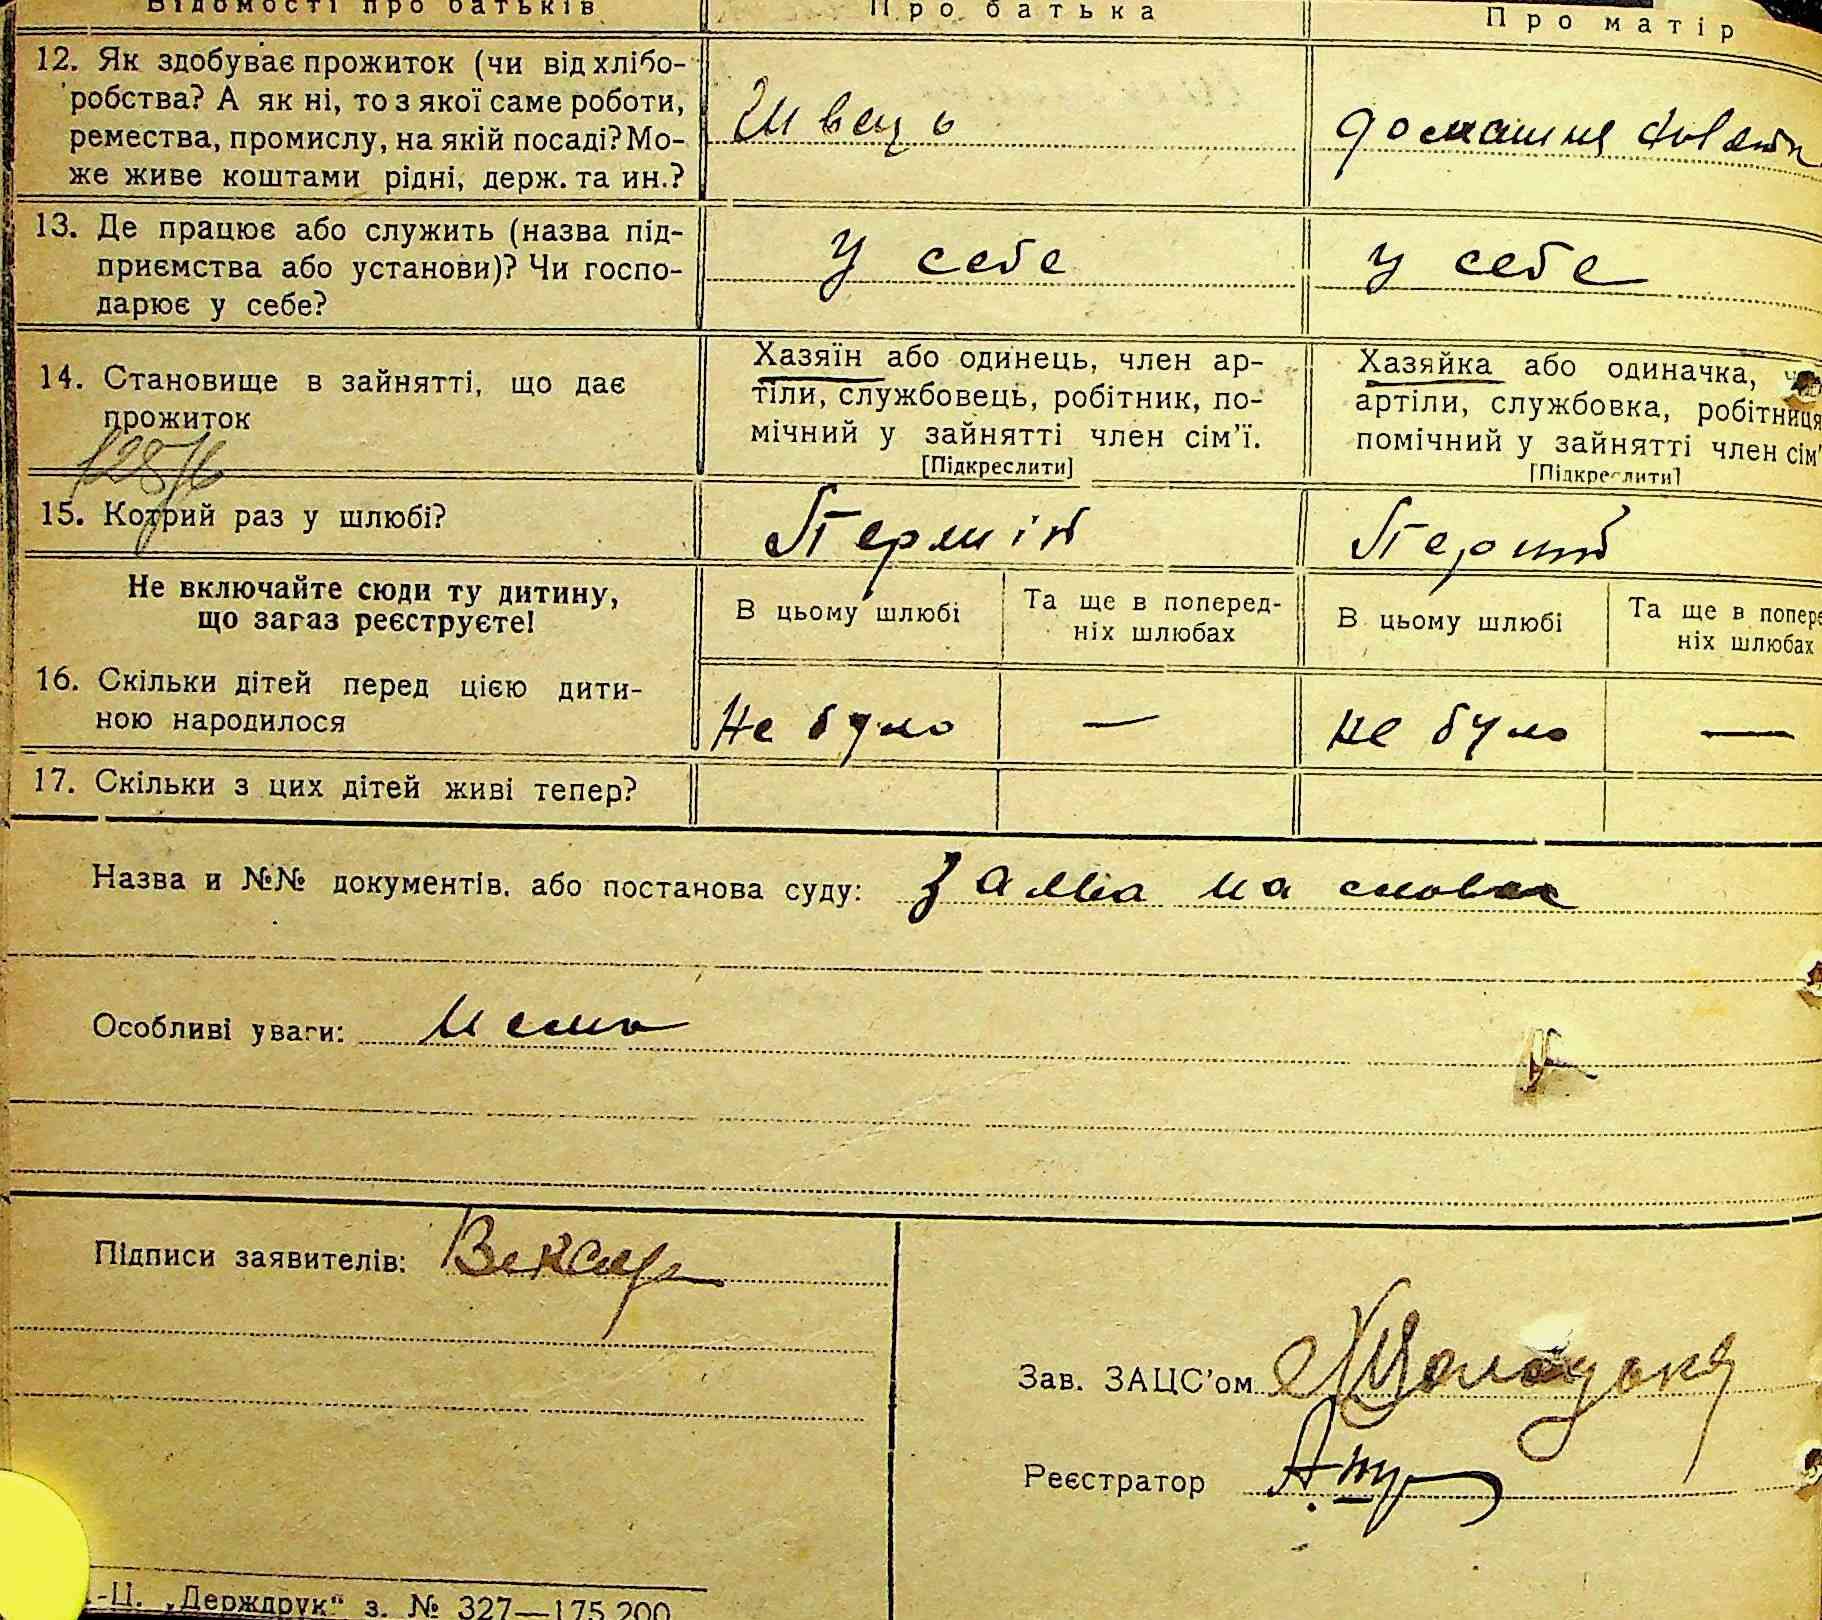 Відомості про батьків
Про батька
Про матір
12. Як здобуває прожиток (чи від хлібо-
робства? А як ні, то з якої саме роботи,
ремества, промислу, на якій посаді? Мо-
же живе коштами рідні, держ. та ин.?
Швець
домашня
13. Де працює або служить (назва під-
приємства або установи)? Чи госпо-
дарює у себе?
У себе
У себе
14. Становище в зайнятті, що дає
прожиток
Хазяїн або одинець, член ар-
тіли, службовець, робітник, по-
мічний у зайнятті член сім'ї.
[Підкреслити]
Хазяйка або одиначка,
артіли, службовка, робітниця
помічний у зайнятті член сім'
[Підкреслити]
15. Котрий раз у шлюбі?
Перший
Перший
Не включайте сюди ту дитину,
що загаз реєструєте!
В цьому шлюбі
Та ще в поперед-
ніх шлюбах
В цьому шлюбі
Та ще в попере
ніх шлюбах
16. Скільки дітей перед цією дити-
ною народилося
Не було
—
Не було
—
17. Скільки з цих дітей живі тепер?
Назва и №№ документів. або постанова суду: Заява на словах
Особливі уваги: Нема
Підписи заявителів: Векслер
Зав. ЗАЦС'ом
Реєстратор
.-Ц. „Держдрук" з. № 327—175.200